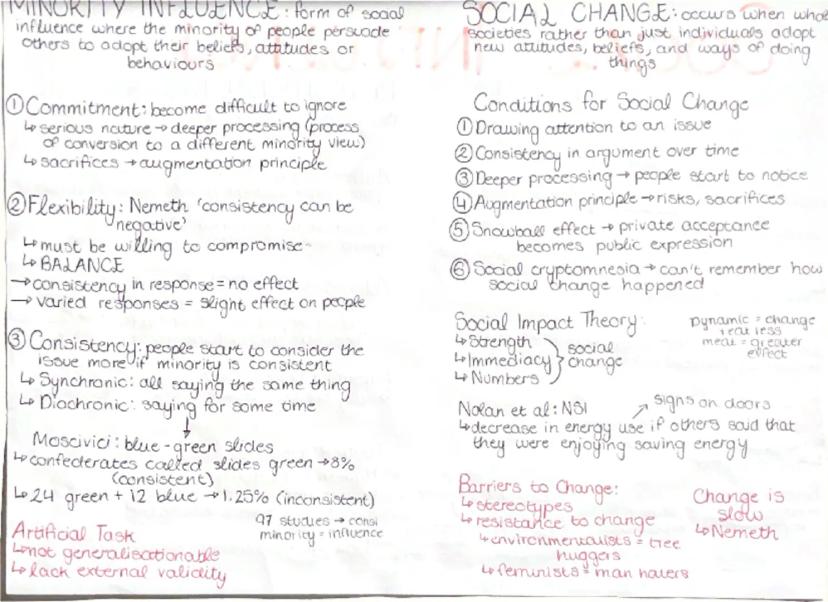 MINORITY INFLUENCE: form of social
influence where the minority of people persuade
others to adopt their beliefs, attitudes or
behaviours
① Commitment: become difficult to ignore
↳ serious nature → deeper processing (process
of conversion to a different minority view)
↳ sacrifices → augmentation principle
② Flexibility: Nemeth 'consistency can be
negative'
↳ must be willing to compromise
↳ BALANCE
→ consistency in response = no effect
→ varied responses = slight effect on people
③ Consistency: people start to consider the
issue more if minority is consistent
↳ Synchronic: all saying the same thing
↳ Diachronic: saying for some time
↓
Moscivici: blue-green slides
↳ confederates called slides green → 8%
(consistent)
↳ 24 green + 12 blue → 1.25% (inconsistent)
97 studies → consi
minority = influence
Artificial Task
↳ not generalisationable
↳ lack external validity
SOCIAL CHANGE: occurs when whole
societies rather than just individuals adopt
new attitudes, beliefs, and ways of doing
things
Conditions for Social Change
① Drawing attention to an issue
② Consistency in argument over time
③ Deeper processing → people start to notice
④ Augmentation principle → risks, sacrifices
⑤ Snowball effect → private acceptance
becomes public expression
⑥ Social cryptomnesia → can't remember how
social change happened
Social Impact Theory:
↳ Strength
↳ Immediacy } social change
↳ Numbers
Dynamic = change
eat less
meat = greater
effect
Nolan et al: NSI ↗ signs on doors
↳ decrease in energy use if others said that
they were enjoying saving energy
Barriers to Change:
↳ stereotypes
↳ resistance to change
↳ environmentalists = tree
huggers
↳ feminists = man haters
Change is
slow
↳ Nemeth